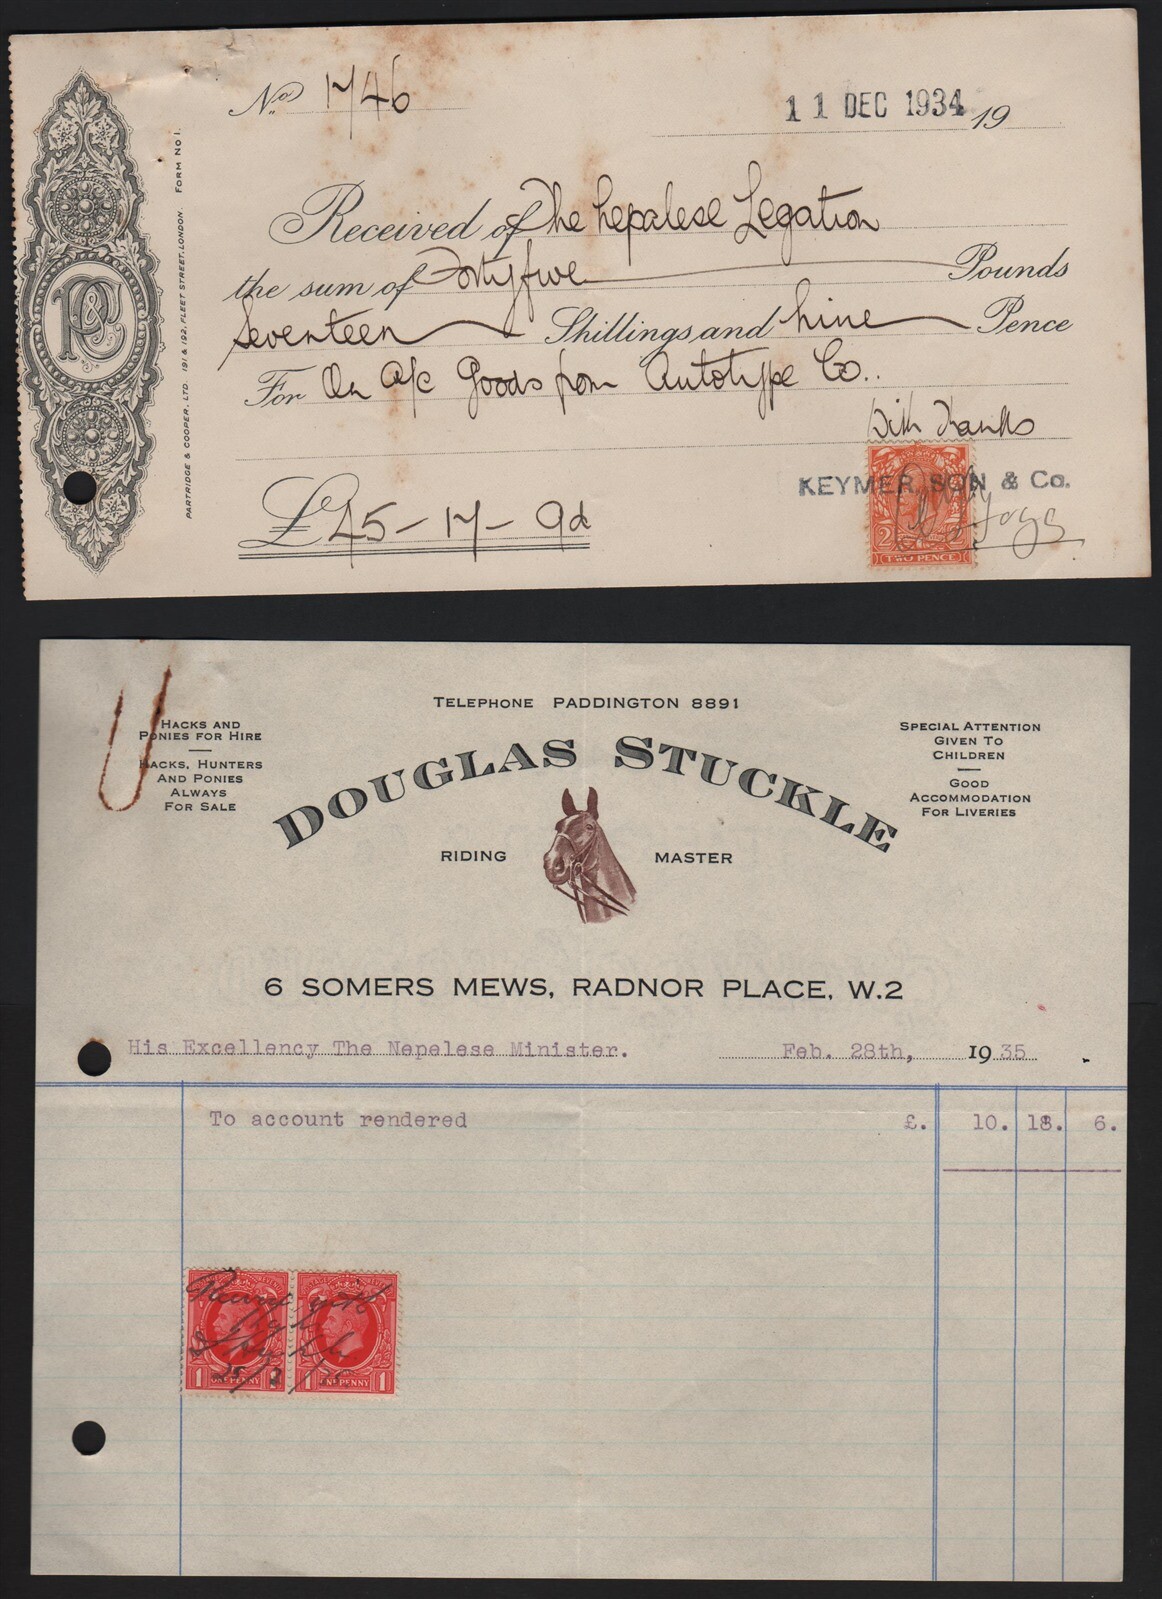 No. 1746
11 DEC 1934 19
Received of The Nepalese Legation
the sum of Forty five Pounds
Seventeen Shillings and nine Pence
For On a/c Goods from Autotype Co..
With Thanks
KEYMER SON & Co.
£45-17-9d
2 2
TWO PENCE
P&C
PARTRIDGE & COOPER, LTD. 191 & 192, FLEET STREET, LONDON. FORM No 1.
TELEPHONE PADDINGTON 8891
HACKS AND
PONIES FOR HIRE
HACKS, HUNTERS
AND PONIES
ALWAYS
FOR SALE
SPECIAL ATTENTION
GIVEN TO
CHILDREN
GOOD
ACCOMMODATION
FOR LIVERIES
DOUGLAS STUCKLE
RIDING MASTER
6 SOMERS MEWS, RADNOR PLACE, W.2
His Excellency The Nepelese Minister. Feb. 28th, 1935
To account rendered £. 10. 18. 6.
Received with
1 ONE PENNY 1 ONE PENNY 1